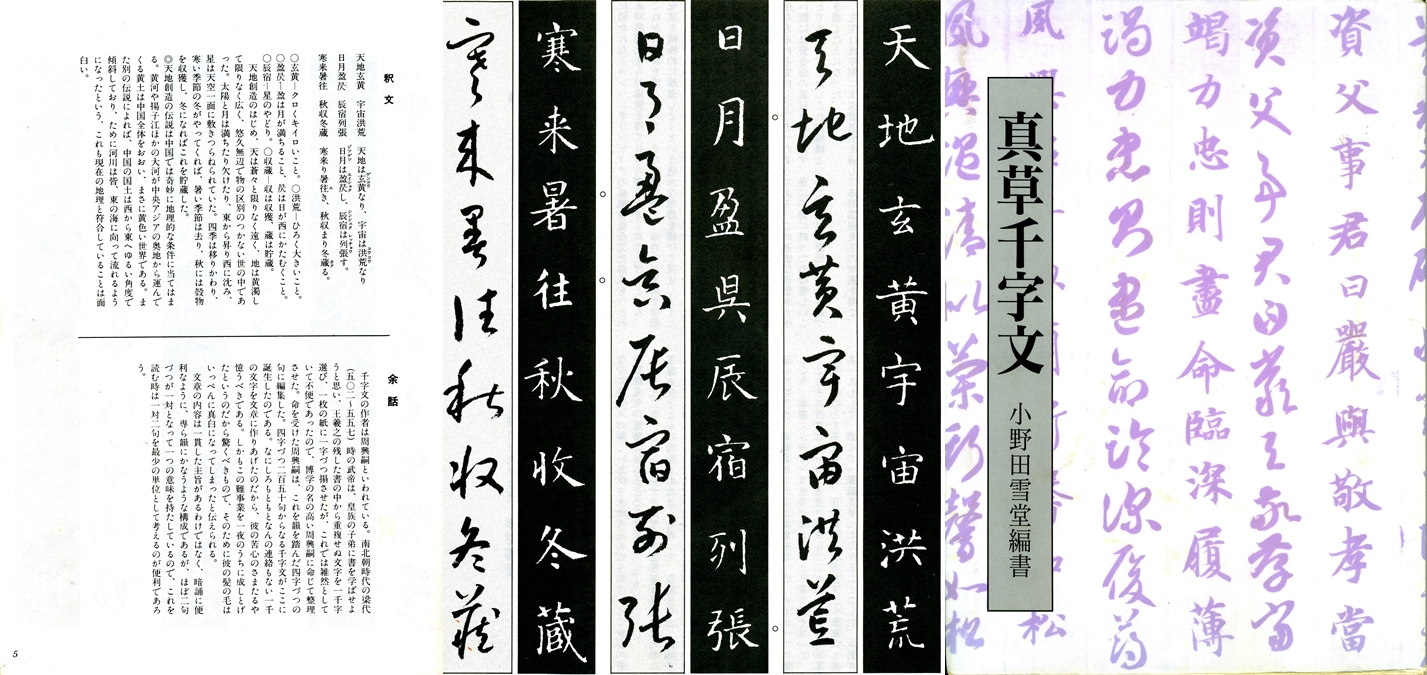 資父事君曰嚴與敬孝當
資父事君曰嚴與敬孝當
竭力忠則盡命臨深履薄
竭力忠則盡命臨深履薄
夙興温凊似蘭斯馨如松
真草千字文
小野田雪堂編書
天地玄黄宇宙洪荒
天地玄黄宇宙洪荒
日月盈昃辰宿列張
日月盈昃辰宿列張
寒来暑往秋收冬蔵
寒来暑往秋收冬蔵
釈文
天地玄黄　宇宙洪荒　天地は玄黄なり、宇宙は洪荒なり
日月盈昃　辰宿列張　日月は盈昃し、辰宿は列張す。
寒来暑往　秋収冬蔵　寒来り暑往き、秋収まり冬蔵る。
○玄黄―クロくキイロいこと。○洪荒―ひろく大きいこと。
○盈昃―盈は月が満ちること、昃は日が西にかたむくこと。
○辰宿―星のやどり。○収蔵―収は収獲、蔵は貯蔵。
天地創造のはじめ、天は蒼々と限りなく遠く、地は黄濁し
て限りなく広く、悠久無辺で物の区別のつかない世の中であ
った。太陽と月は満ちたり欠けたり、東から昇り西に沈み、
星は天空一面に敷きつらねられていた。四季は移りかわり、
寒い季節の冬がやってくれば、暑い季節は去り、秋には穀物
を収獲し、冬になればこれを貯蔵した。
◎天地創造の伝説は中国では奇妙に地理的な条件に当てはま
る。黄河や揚子江はかの大河が中央アジアの奥地から運んで
くる黄土は中国全体をおおい、まさに黄色い世界である。ま
た別の伝説によれば、中国の国土は西から東へゆるい角度で
傾斜しており、ために河川は皆、東の海に向って流れるよう
になったという、これも現在の地理と符合していることは面
白い。
余話
千字文の作者は周興嗣といわれている。南北朝時代の梁代
(五〇二〜五五七)時の武帝は、皇族の子弟に書を学ばせよ
うと思い、王羲之の残した書の中から重複せぬ文字を一千字
選び、一枚の紙に一字づつ搨させたが、これでは雑然として
いて不便であったので、博学の名の高い周興嗣に命じて整理
させた。命を受けた周興嗣は、これを韻を踏んだ四字づつの
句に編集した。四字づつ二百五十句からなる千字文がここに
誕生したのである。なにしろもともとなんの連絡もない一千
の文字を文章に作りあげたのだから、彼の苦心のさまたるや
憶うべきである。しかもこの難事業を一夜のうちに成しとげ
たというのだから驚くべきもので、そのために彼の髪の毛は
いっぺんに真白になってしまったと伝えられる。
文章の内容は一貫した主旨があるわけではなく、暗誦に便
利なように、専ら韻にかなうような構成であるが、ほぼ二句
づつが一対となって一つの意味を持たしているので、これを
読む時は一対二句を最少の単位として考えるのが便利であろ
う。
5